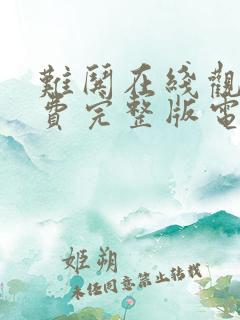 難鬪在綫觀
費完整版電
姬朔
未任同意禁止转载